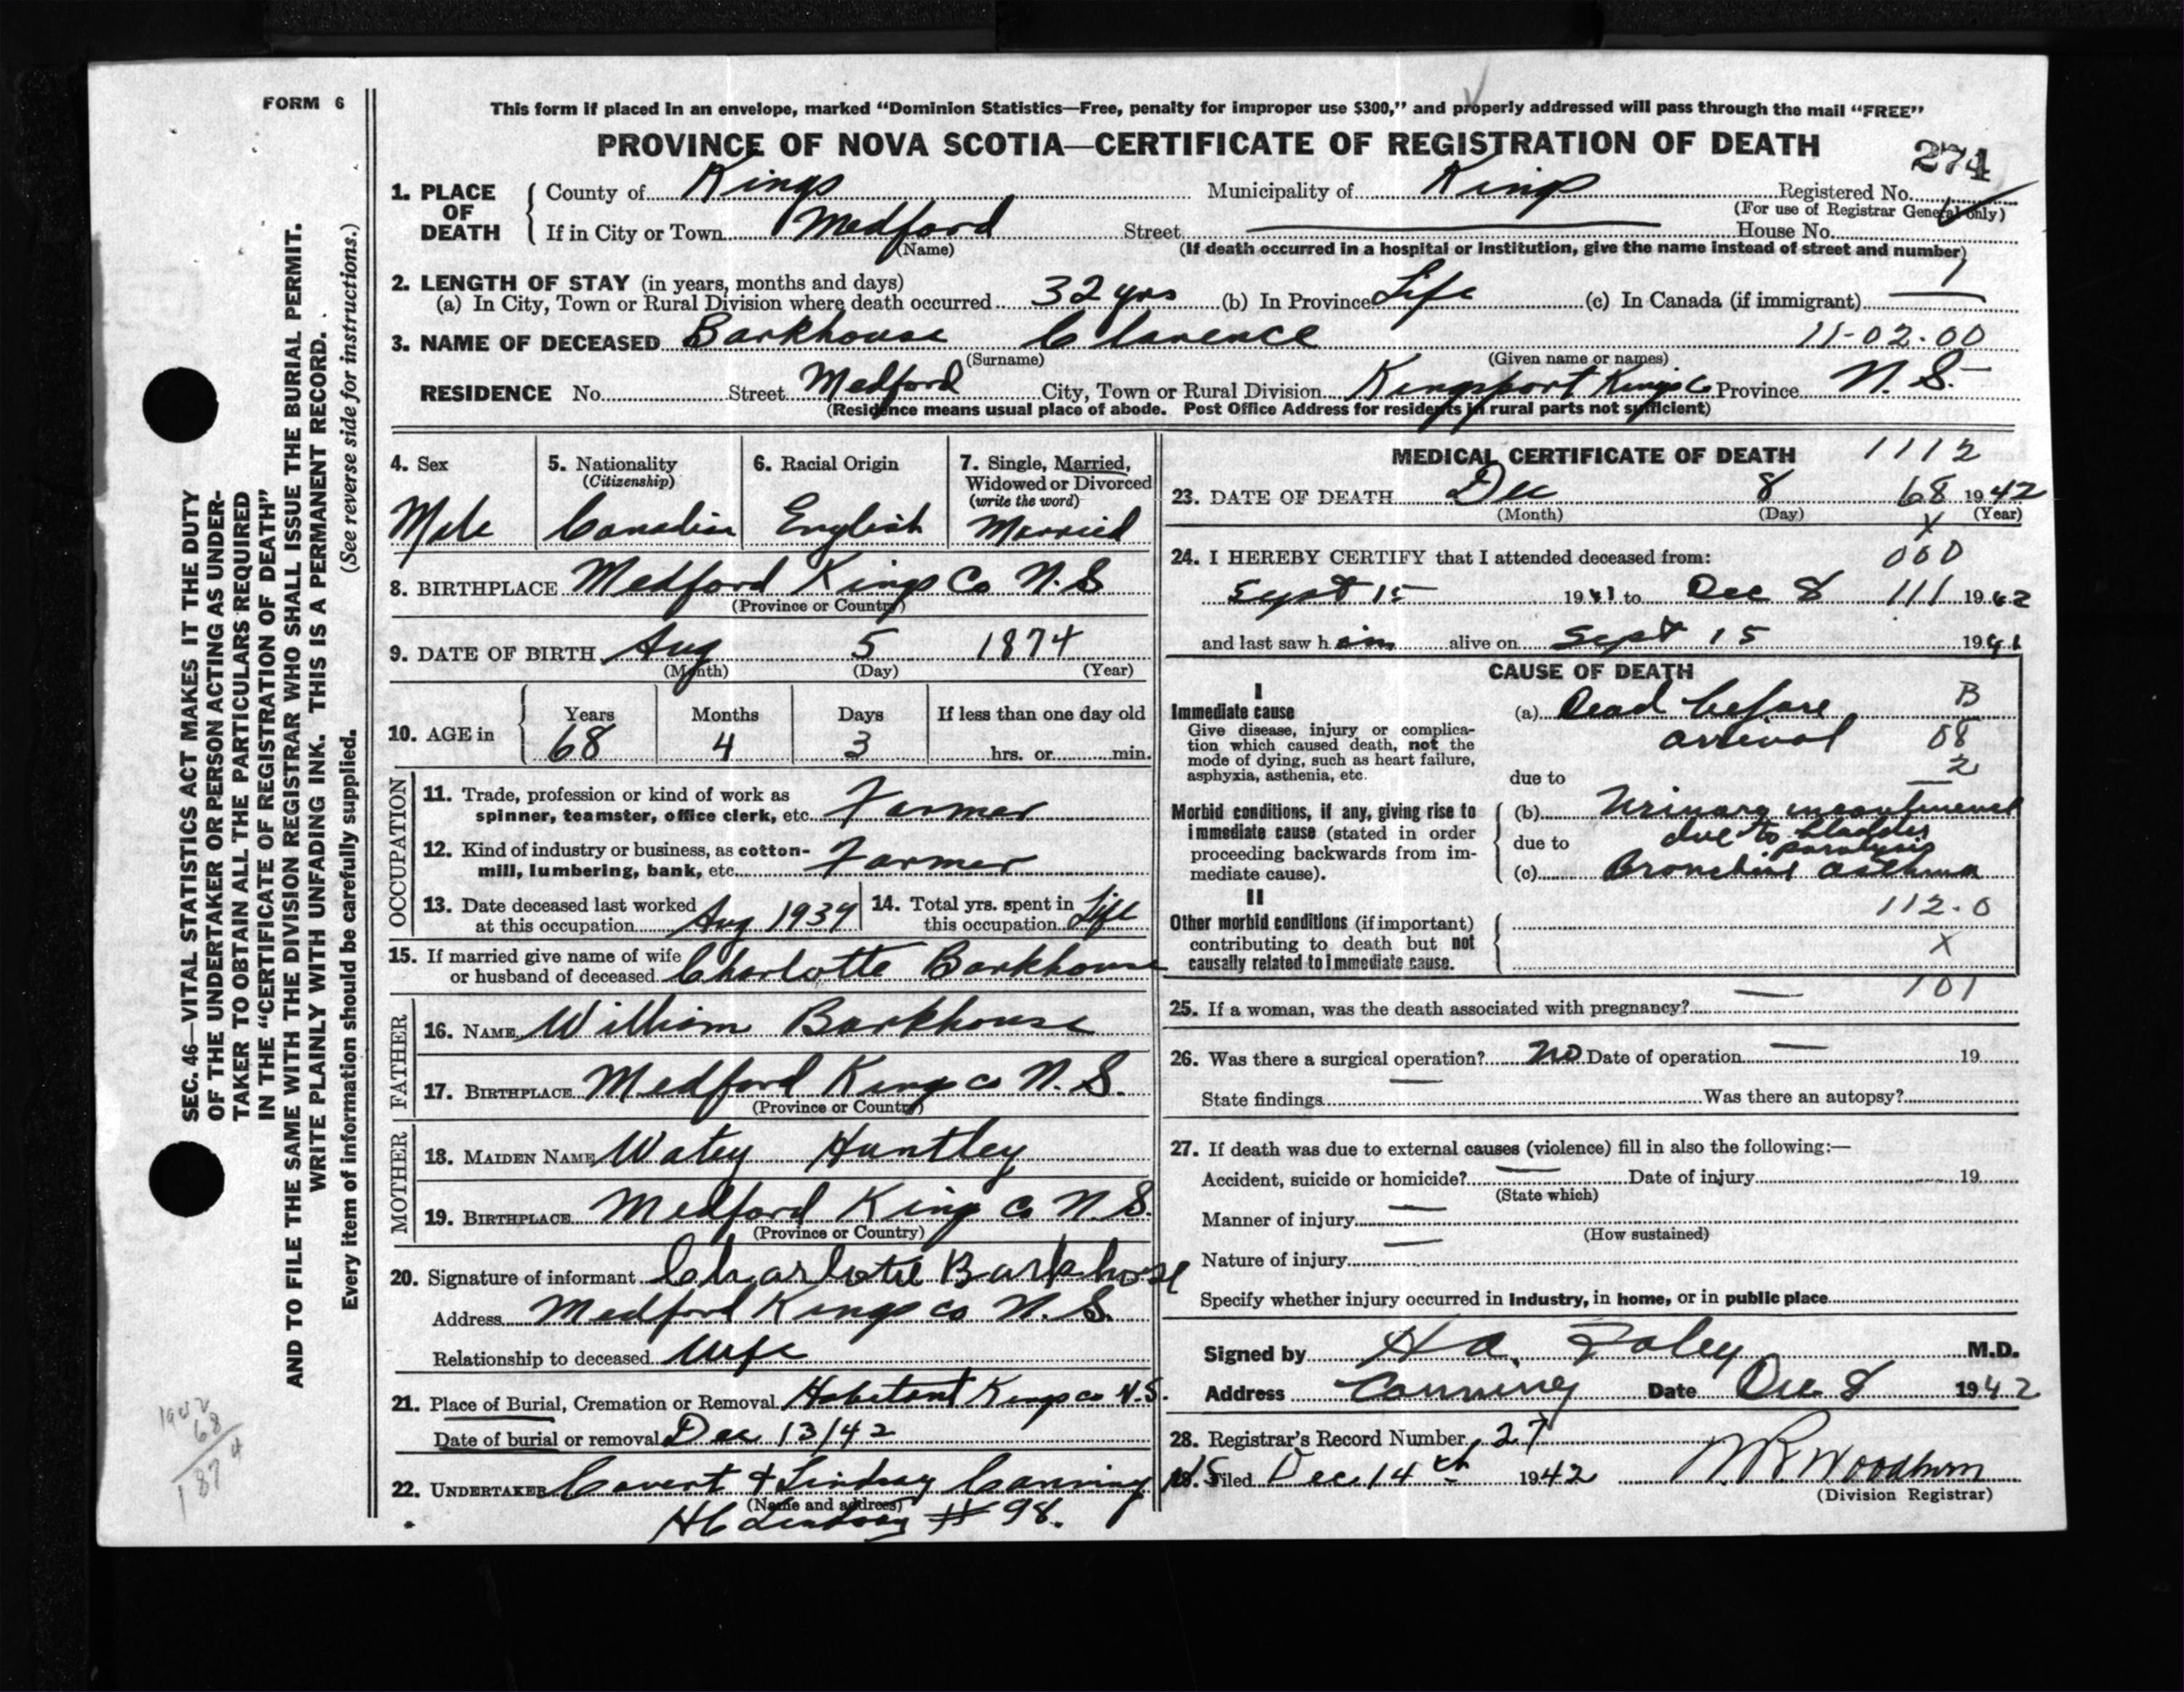 FORM 6
This form if placed in an envelope, marked “Dominion Statistics—Free, penalty for improper use $300,” and properly addressed will pass through the mail “FREE”
PROVINCE OF NOVA SCOTIA—CERTIFICATE OF REGISTRATION OF DEATH
274
1. PLACE OF DEATH
County of Kings Municipality of Kings Registered No.
(For use of Registrar General only)
6
If in City or Town Medford Street House No.
(Name) (If death occurred in a hospital or institution, give the name instead of street and number)
2. LENGTH OF STAY (in years, months and days)
(a) In City, Town or Rural Division where death occurred 32 yrs (b) In Province Life (c) In Canada (if immigrant)
3. NAME OF DECEASED Barkhouse Clarence 11-02-00
(Surname) (Given name or names)
RESIDENCE No. Street Medford City, Town or Rural Division Kingsport Kings Co Province N.S.
(Residence means usual place of abode. Post Office Address for residents in rural parts not sufficient)
4. Sex Male
5. Nationality (Citizenship) Canadian
6. Racial Origin English
7. Single, Married, Widowed or Divorced (write the word) Married
8. BIRTHPLACE Medford Kings Co N.S
(Province or Country)
9. DATE OF BIRTH Aug 5 1874
(Month) (Day) (Year)
10. AGE in Years Months Days If less than one day old
68 4 3 hrs. or min.
OCCUPATION
11. Trade, profession or kind of work as
spinner, teamster, office clerk, etc. Farmer
12. Kind of industry or business, as cotton-
mill, lumbering, bank, etc. Farmer
13. Date deceased last worked
at this occupation Aug 1939
14. Total yrs. spent in
this occupation Life
15. If married give name of wife
or husband of deceased Charlotte Barkhouse
FATHER
16. NAME William Barkhouse
17. BIRTHPLACE Medford Kings Co N.S.
(Province or Country)
MOTHER
18. MAIDEN NAME Watey Huntley
19. BIRTHPLACE Medford Kings Co N.S.
(Province or Country)
20. Signature of informant Charlotte Barkhouse
Address Medford Kings Co N.S.
Relationship to deceased Wife
21. Place of Burial, Cremation or Removal Habitant Kings co N.S.
Date of burial or removal Dec 13/42
22. UNDERTAKER Covert & Lindsay Canning
(Name and address)
HC Lindsay # 98.
MEDICAL CERTIFICATE OF DEATH 1112
23. DATE OF DEATH Dec 8 68 1942
(Month) (Day) (Year)
X
24. I HEREBY CERTIFY that I attended deceased from: 000
Sept 15 1941 to Dec 8 111 1942
and last saw him alive on Sept 15 1941
CAUSE OF DEATH
I
Immediate cause
Give disease, injury or complica-
tion which caused death, not the
mode of dying, such as heart failure,
asphyxia, asthenia, etc.
(a) Dead before B
arrival 08
2
due to
Morbid conditions, if any, giving rise to
immediate cause (stated in order
proceeding backwards from im-
mediate cause).
(b) Urinary incontinence
due to due to bladder
paralysis
(c) Bronchial asthma
II
112-0
Other morbid conditions (if important)
contributing to death but not
causally related to immediate cause.
X
101
25. If a woman, was the death associated with pregnancy?
26. Was there a surgical operation? no Date of operation 19
State findings Was there an autopsy?
27. If death was due to external causes (violence) fill in also the following:—
Accident, suicide or homicide? Date of injury 19
(State which)
Manner of injury
(How sustained)
Nature of injury
Specify whether injury occurred in Industry, in home, or in public place
Signed by M.D.
Address Canning Date Dec 8 1942
28. Registrar's Record Number 27
Filed Dec 14th 1942
(Division Registrar)
SEC. 46—VITAL STATISTICS ACT MAKES IT THE DUTY
OF THE UNDERTAKER OR PERSON ACTING AS UNDER-
TAKER TO OBTAIN ALL THE PARTICULARS REQUIRED
IN THE “CERTIFICATE OF REGISTRATION OF DEATH”
AND TO FILE THE SAME WITH THE DIVISION REGISTRAR WHO SHALL ISSUE THE BURIAL PERMIT.
WRITE PLAINLY WITH UNFADING INK. THIS IS A PERMANENT RECORD.
Every item of information should be carefully supplied. (See reverse side for instructions.)
1942
68
1874